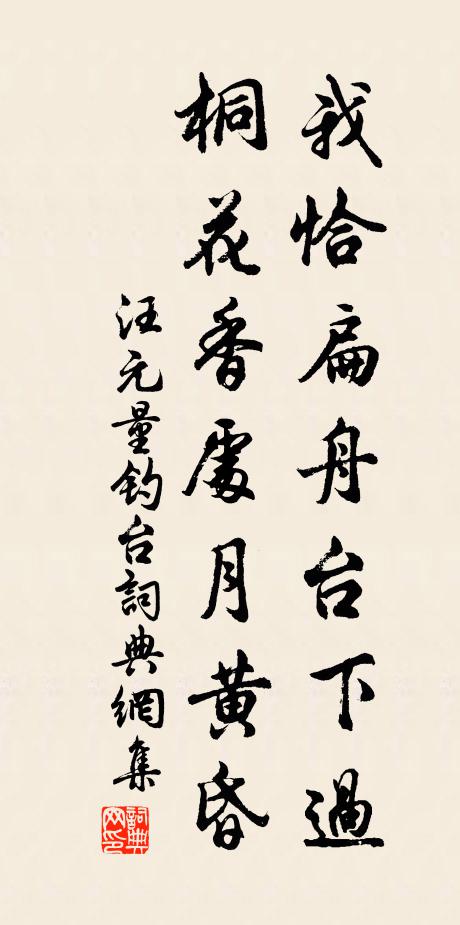 我恰扁舟台下過
桐花香處月黃昏
汪元量钓台詞典網集
詞典网印